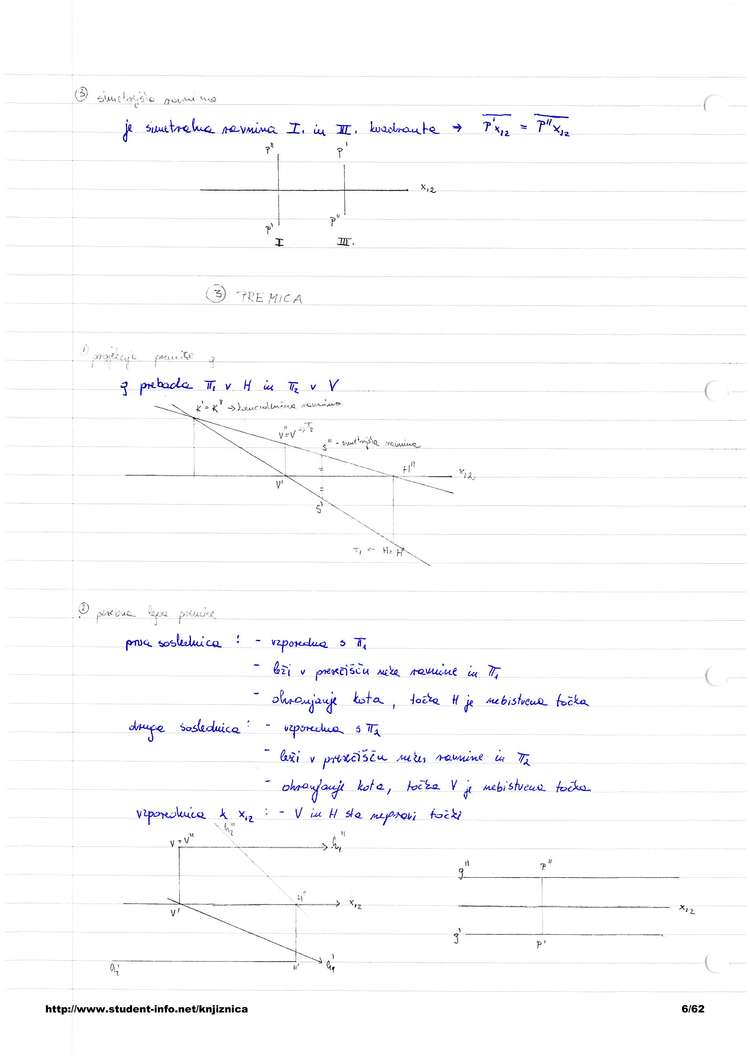 ③ simetrijska ravnina
je simetralna ravnina I. in III. kvadranta → P'x₁₂ = P''x₁₂
P'' P'
x₁₂
P' P''
I III.
③ PREMICA
1) projekcija premice g
g prebada π₁ v H in π₂ v V
K' = K''
V'' = V → π₂
S'' - simetrijska ravnina
H'' x₁₂
V'
S'
π₁ ← H = H'
2) posebna lega premice
prva soslednica : - vzporedna s π₁
- leži v presečišču neke ravnine in π₁
- ohranjanje kota, točka H je nebistvena točka
druga soslednica : - vzporedna s π₂
- leži v presečišču neke ravnine in π₂
- ohranjanje kota, točka V je nebistvena točka
vzporednica k x₁₂ : - V in H sta nepravi točki
h₂''
V = V'' h₁''
g'' P''
H'' x₁₂
V' x₁₂
g' P'
H'
http://www.student-info.net/knjiznica 6/62